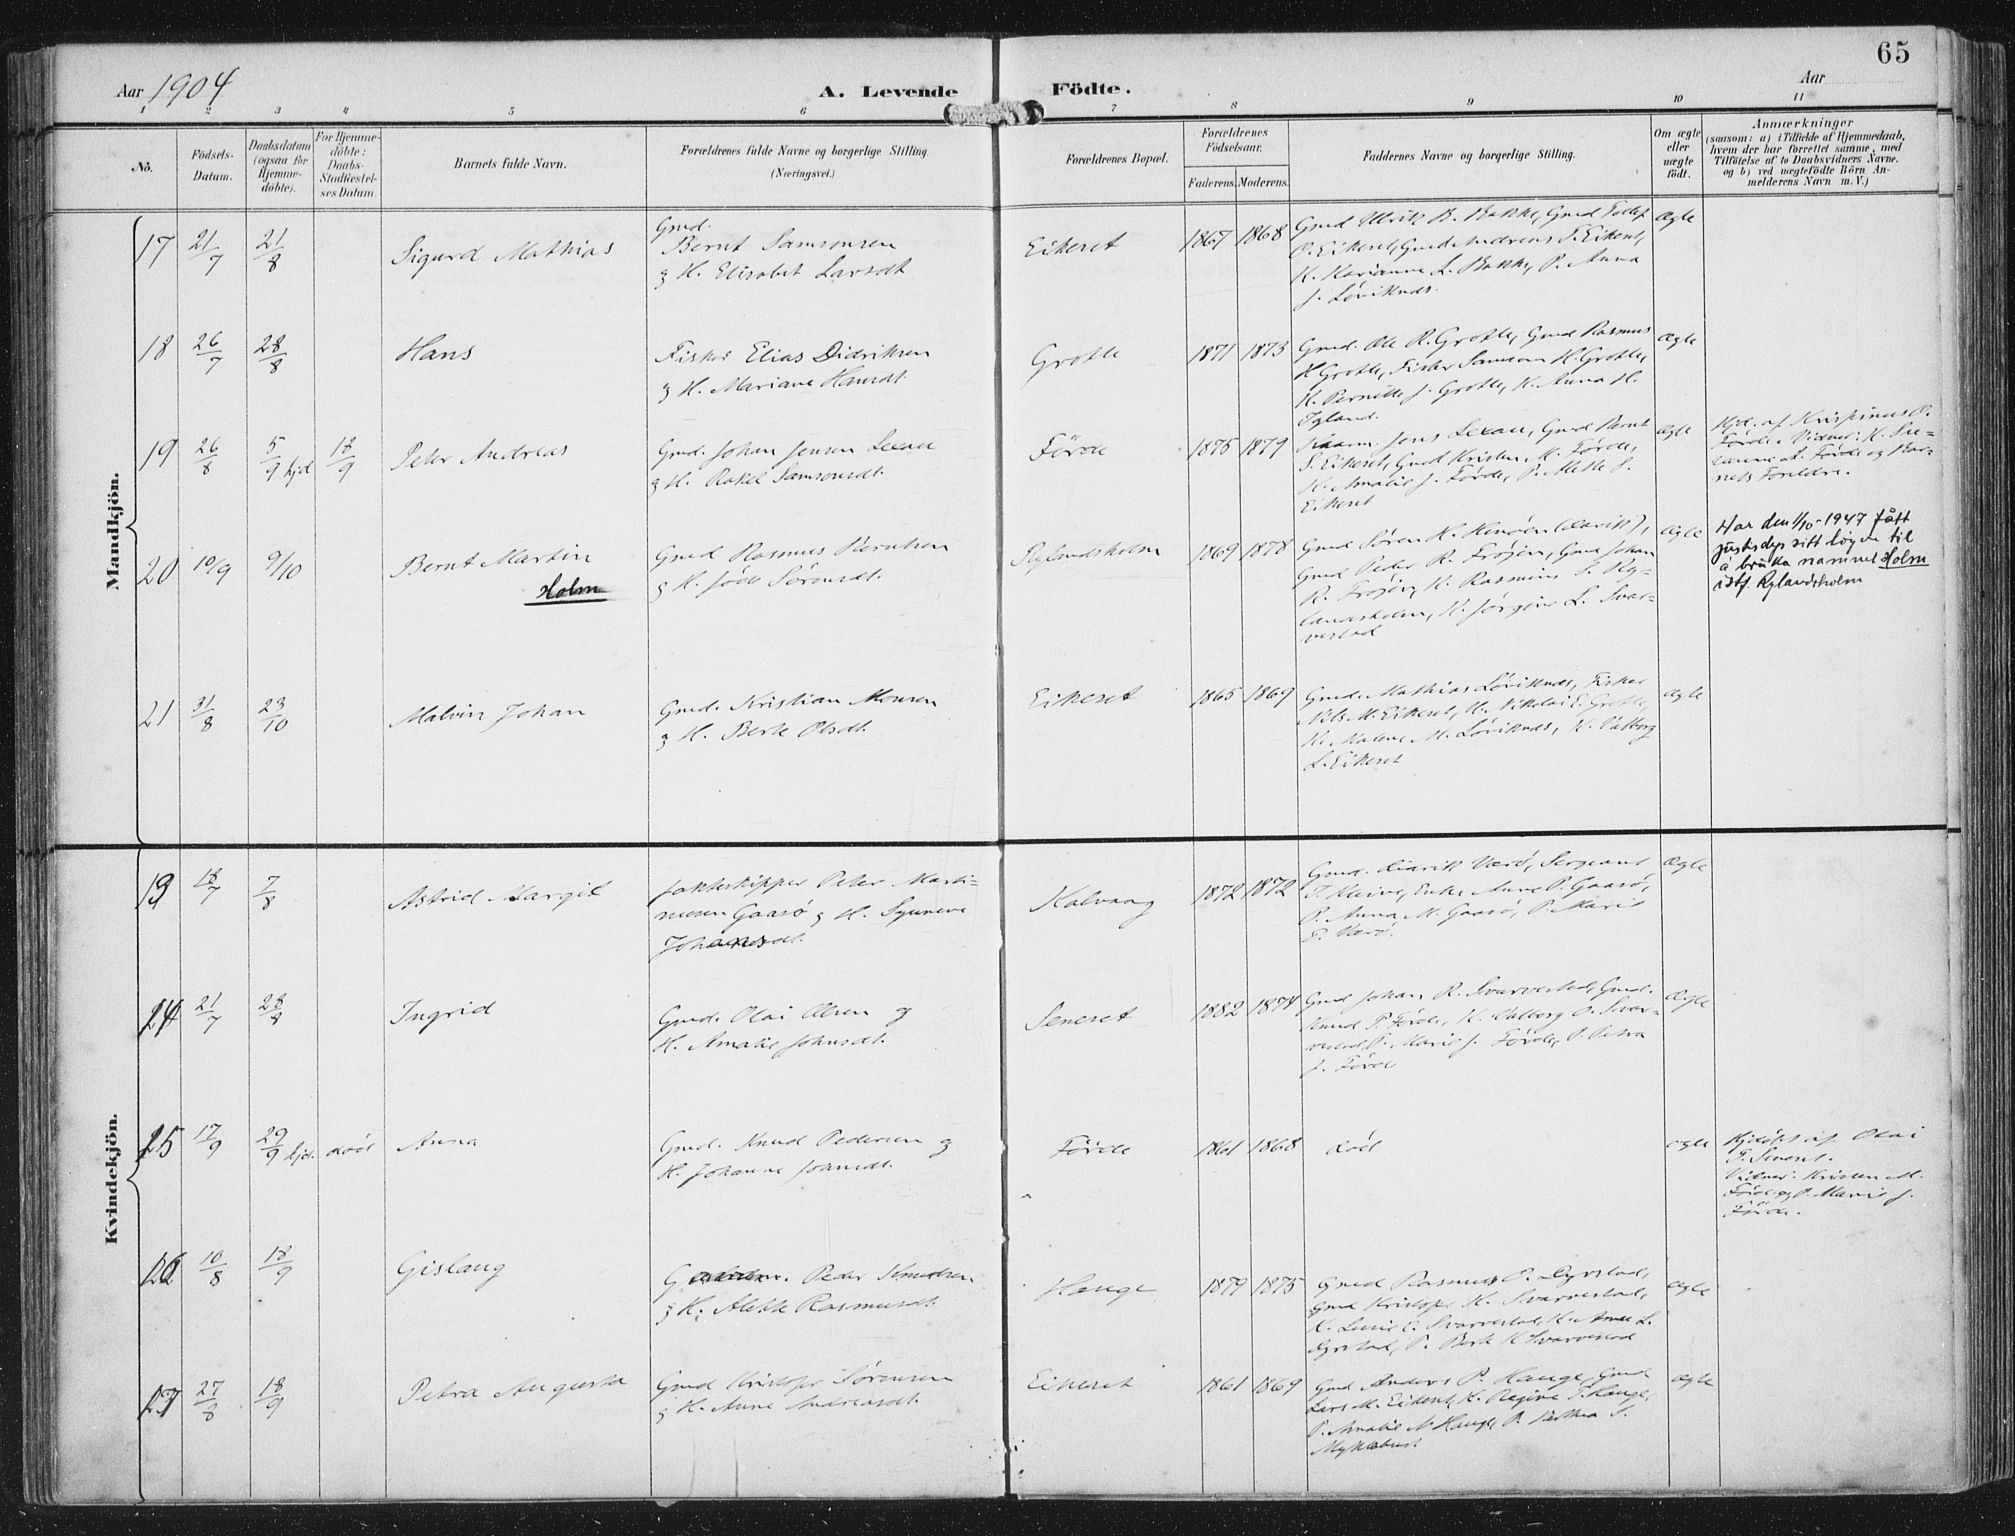 65
Aar 1904
A. Levende
Födte.
Aar
1 2 3 4 5 6 7 8 9 10 11
No.
Födsels-
Datum.
Daabsdatum
(ogsaa for
Hjemme-
döbte).
For Hjemme-
döbte:
Daabs-
Stadfæstel-
ses Datum.
Barnets fulde Navn.
Forældrenes fulde Navne og borgerlige Stilling.
(Næringsvei.)
Forældrenes Bopæl.
Forældrenes
Födselsaar.
Faderens. Moderens.
Faddernes Navne og borgerlige Stilling.
Om ægte
eller
uægte
födt.
Anmærkninger
(saasom: a) i Tilfælde af Hjemmedaab,
hvem der har forrettet samme, med
Tilföielse af to Daabsvidners Navne.
og b) ved uægtefödte Börn An-
melderens Navn m. V.)
Mandkjön.
17 21/7 21/8 Sigurd Mathias
Gmd.
Bernt Samsonsen
& H. Elisabet Larsdt
Eikeset 1867 1868
Gmd Ullrik B. Bakke, Gmd Tollef
O. Eikeset, Gmd Andreas T. Eikeset,
K. Marianne L. Bakke, P. Anna
J. Löviknes.
Ægte
18 26/7 28/8 Hans
Fisker Elias Didriksen
& H. Mariane Hansdt.
Grotle 1871 1873
Gmd. Ole R. Grotle, Gmd Rasmus
H Grotle, Fisker Samson H. Grotle,
K. Pernille J. Grotle, K. Anna H.
Ægte
19 26/8 5/9 hjd 18/9 Peter Andreas
Gmd. Johan Jensen Lexau
& H. Rakel Samsonsdt.
Förde 1875 1879
Jens Lexau, Gmd Bernt
S. Eikeset, Gmd Kristen M. Förde,
K. Amalie J. Förde, P. Alette S.
Eikeset
Ægte
Hjd. af Krispinus O.
Förde. Vidner: K.
Förde og Bar-
nets Forældre.
20 10/9 9/10 Bernt Martin
Holm
Gmd Rasmus Berntsen
& H. Sörensdt.
Rylandsholm 1869 1878
Gmd Sören K.
Gmd Peder R. Fröjen, Gmd Johan
R. Fröjen, K. Rasmine T. Ry-
landsholm, K. Jörgine L. Svar-
vestad
Ægte
Har den 1/10-1947 fått
justisdep sitt löyve til
å bruka namnet Holm
istf. Rylandsholm
21 31/8 23/10 Malvin Johan
Gmd. Kristian Monsen
& H. Berte Olsdt.
Eikeset 1865 1869
Gmd. Mathias Löviknes, Fisker
Nils M. Eikeset, K. Nikolai E. Grotle,
K. Malene M. Löviknes, K. Valborg
L. Eikeset
Ægte
Kvindekjön.
18/7 7/8 Astrid Margit
Jakteskipper Peter Marti-
nusen Gaasö & H. Synneve
Johansdt.
Kalvaag 1872 1872
Gmd. Didrik Værö, Sergeant
T. Kleive, Enke Anne P. Gaasö,
P. Anna M. Gaasö, P. Marie
Værö.
Ægte
24 21/7 28/8 Ingrid
Gmd. Olai Olsen og
H. Amalie Johnsdt.
Seneset 1882 1874
Gmd Johan R. Svarvestad, Gmd.
Knud P. Förde, K. Valborg O. Svar-
vestad, P. Marie J. Förde, P. Petra
J. Förde
Ægte
25 17/9 29/9 hjd. död Anna
Gmd. Knud Pedersen og
H. Johanne Johnsdt.
Förde 1861 1868
död
ægte
Hjdöbt af Olai
Vidner: Kristen M.
Förde og P. Marie J.
Förde.
26 10/8 18/9 Gislaug
Peder Knudsen
& H. Alette Rasmusdt.
Hauge 1879 1875
Gmd Rasmus P. Dyrstad,
Gmd Kristofer K. Svarvestad,
K. Lusie E. Svarvestad, K. Anne L.
Dyrstad, P. Berte K Svarvestad
Ægte
27 27/8 18/9 Petra Augusta
Gmd Kristofer Sörensen
& H. Anne Andreasdt.
Eikeset 1861 1869
Gmd Anders P. Hauge, Gmd
Lars M. Eikeset, K. Regine T. Hauge,
P. Amalie N Hauge, P. S.
Myklebust
Ægte